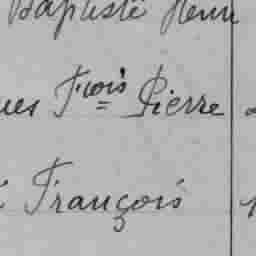 Baptiste Henri
ues Fçois Pierre
François